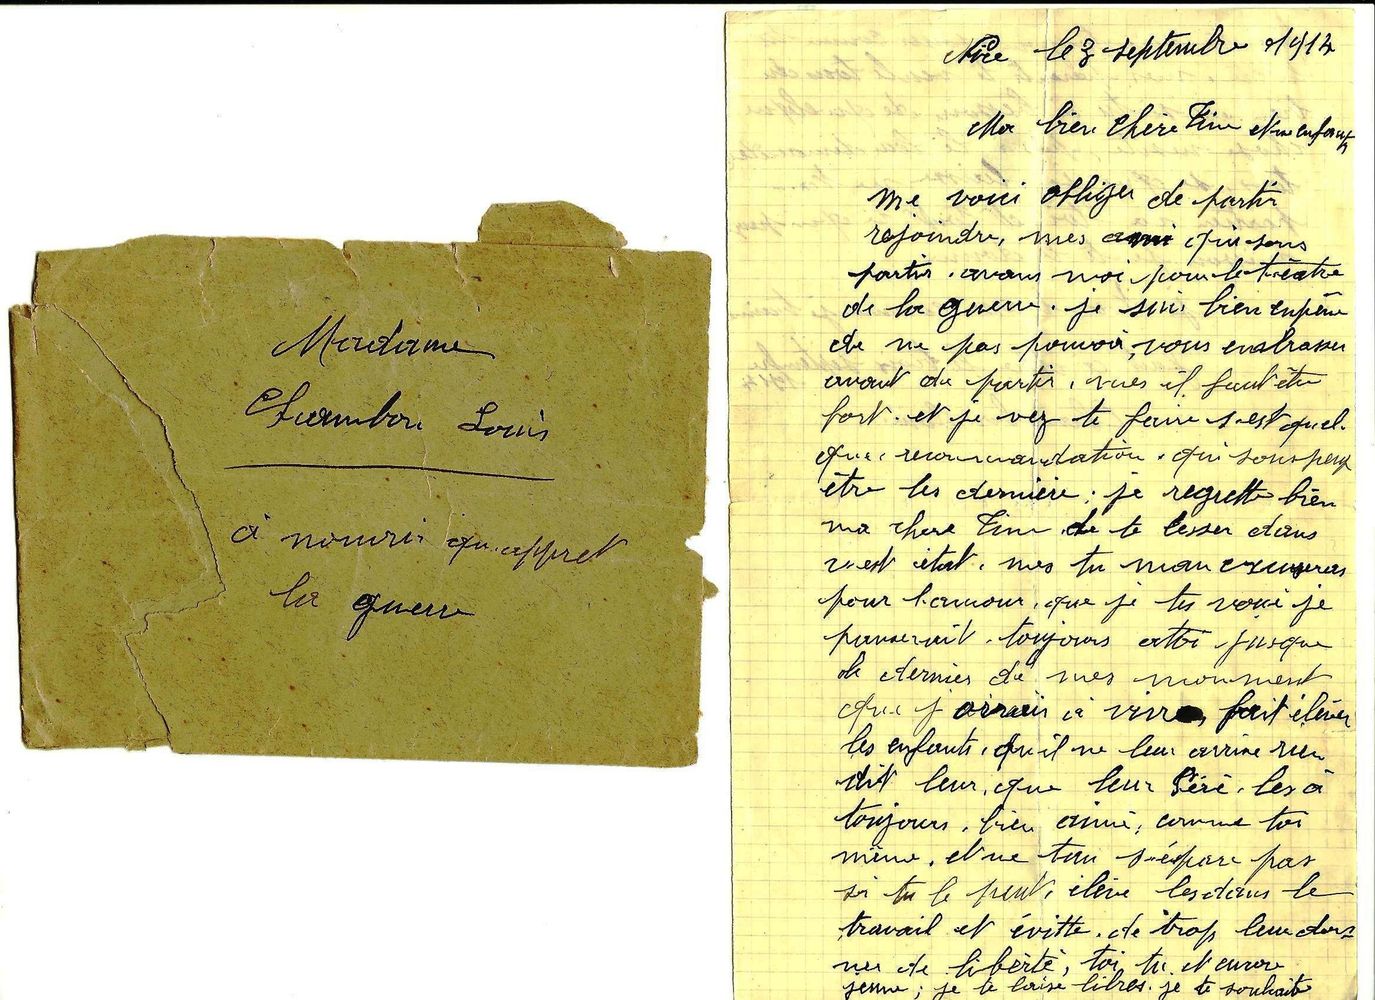 Madame
Chambon Louis
à nouvrir qu'appret
la guerre
Nice le 3 septembre 1914
Ma bien chère Fine et me enfants
me voici obliger de partir
rejoindre, mes ami qui sons
partir. avans moi pour le téatre
de la guerre. je suis bien enpéne
de ne pas pouvoir, vous enbrasser
avant de partir, mes il faut être
fort. et je vez te faire s-est quel-
que, recommandation. qui sons peux
être les dernière; je regrette bien
ma chere Fine de te lesser dans
s-est état, mes tu man excuseras
pour l'amour, que je tes vouè je
panserait. toujours attoi jusque
le dernier de mes moument
que j'aurair à vivre, fait élever
les enfants, qu'il ne leur arrive rien
dit leur, que leur Péré. les à
toujours, bien aimé, comme toi
même, et ne tan sépare pas
si tu le peut, éléve les dans le
travail et évitte. de trop leur don-
ner de libèrté, toi tu et encore
jeune; je te laise libres. je te souhaite